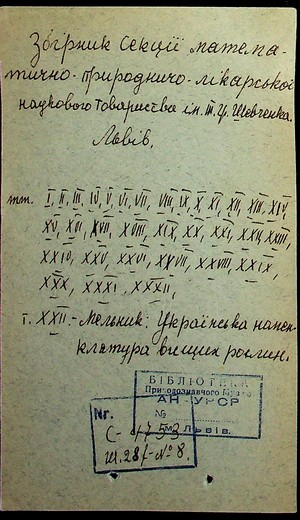 Збірник Секції матема-
тично-природничо-лікарської
наукового товариства ім. Т. Г. Шевченка.
Львів.
тт. I, II, III, IV, V, VI, VII, VIII, IX, X, XI, XII, XIII, XIV,
XV, XVI, XVII, XVIII, XIX, XX, XXI, XXII, XXIII,
XXIV, XXV, XXVI, XXVII, XXVIII, XXIX,
XXX, XXXI, XXXII,
т. XXII. - Мельник: Українська номен-
клятура вищих рослин.
БІБЛІОТЕКА
Природознавчого Музею
АН-УРСР
№
м. Львів.
Nr.
С-4753
Ш.28/-№8.